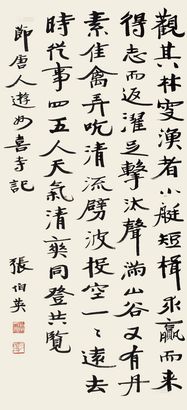 觀其林叟漁者小艇短楫承贏而来
得志而返濯足擊汰聲满山谷又有丹
素佳禽弄吭清流劈波投空一一遠去
時從事四五人天氣清爽同登共覧
節唐人遊妙喜寺記
張伯英